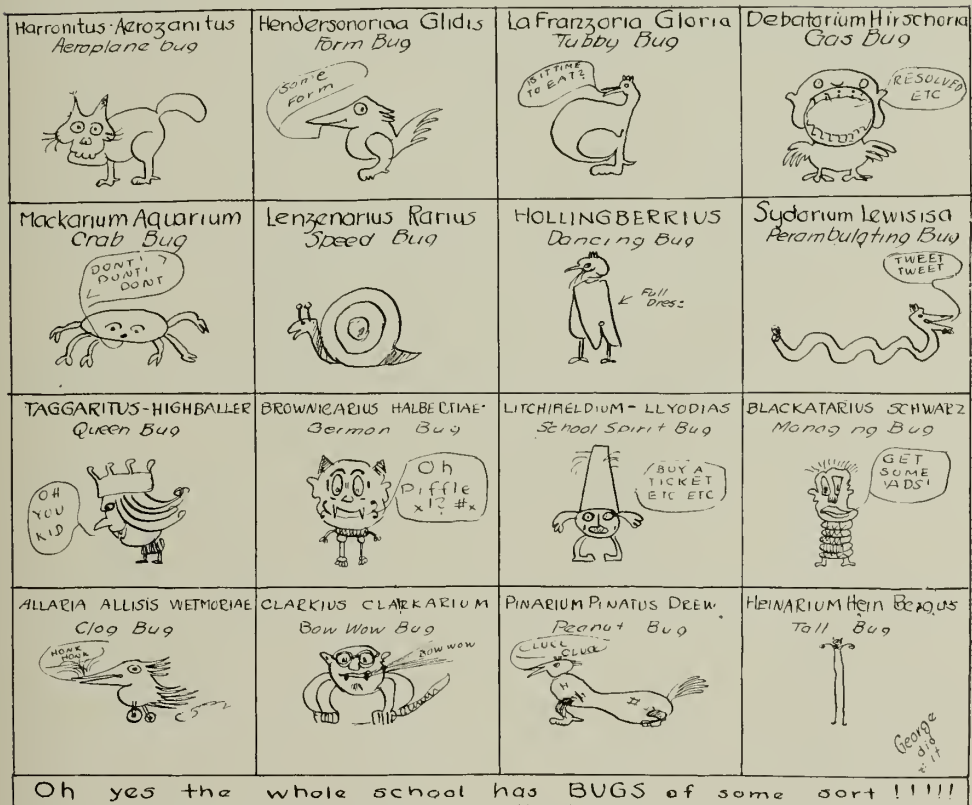 Harronitus-Aerozanitus
Aeroplane bug
Hendersonoriaa Glidis
Form Bug
Some
Form
La Franzoria Gloria
Tubby Bug
IS IT TIME
TO EAT?
Debatorium Hirschoria
Gas Bug
RESOLVED
ETC
Mackarium Aquarium
Crab Bug
DONT!
DONT!
DONT
Lenzenarius Rarius
Speed Bug
HOLLINGBERRIUS
Dancing Bug
Full
Dress
Sydorium Lewisisa
Perambulating Bug
TWEET
TWEET
TAGGARITUS-HIGHBALLER
Queen Bug
OH
YOU
KID
BROWNICARIUS HALBECTIAE-
German Bug
Oh
Piffle
x!? #x
LITCHFIELDIUM-LLYODIAS
School Spirit Bug
BUY A
TICKET
ETC ETC
BLACKATARIUS SCHWARZ
Managing Bug
GET
SOME
'ADS'
ALLARIA ALLISIS WETMORIAE
Clog Bug
HONK
HONK
CLARKIUS CLARKARIUM
Bow Wow Bug
BOW WOW
PINARIUM PINATUS DREW.
Peanut Bug
CLUCK
CLUCK
HEINARIUM Hein Bergus
Tall Bug
George
did
it
Oh yes the whole school has BUGS of some sort !!!!!